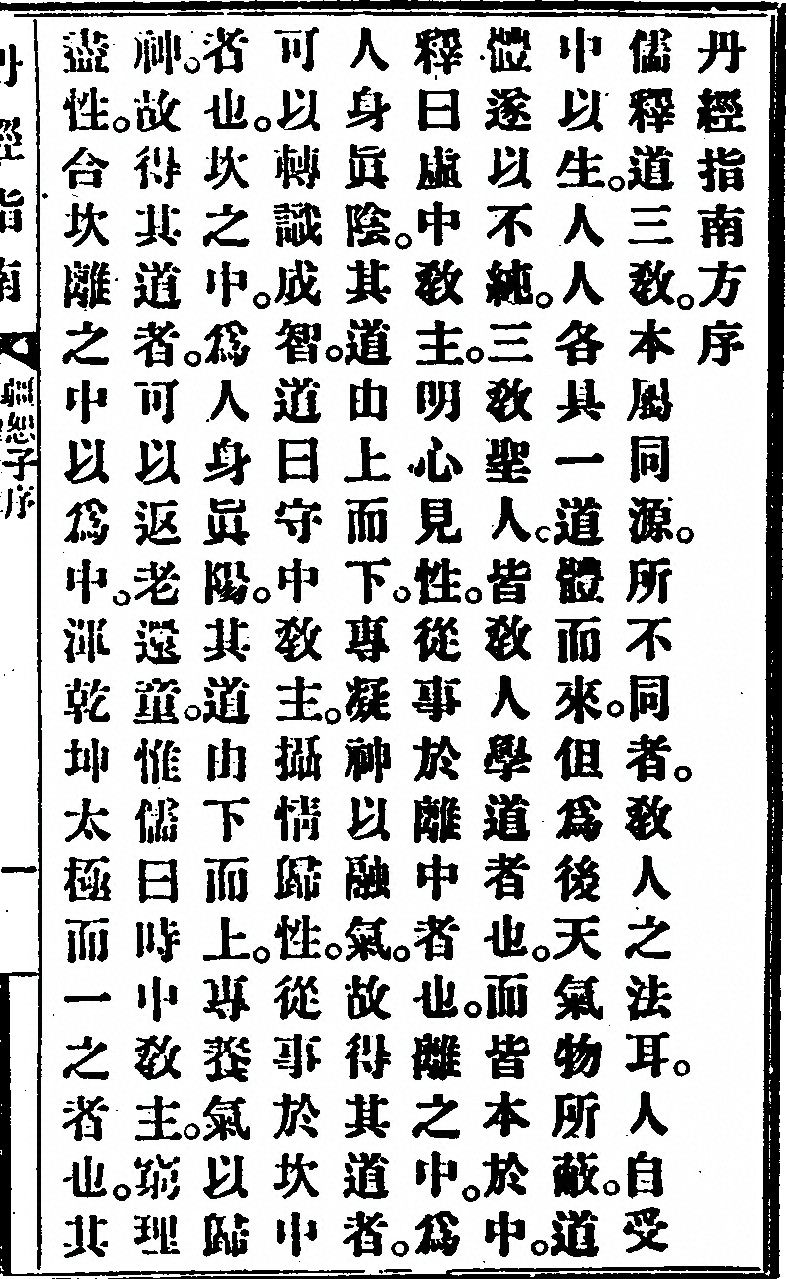 丹經指南方序
儒釋道三教。本屬同源。所不同者。教人之法耳。人自受
中以生。人人各具一道體而來。但爲後天氣物所蔽。道
體遂以不純。三教聖人。皆教人學道者也。而皆本於中。
釋曰虛中教主。明心見性。從事於離中者也。離之中。爲
人身眞陰。其道由上而下。專凝神以融氣。故得其道者。
可以轉識成智。道曰守中教主。攝情歸性。從事於坎中
者也。坎之中。爲人身眞陽。其道由下而上。專養氣以歸
神。故得其道者。可以返老還童。惟儒曰時中教主。窮理
盡性。合坎離之中以爲中。渾乾坤太極而一之者也。其
丹經指南
恕子序
一